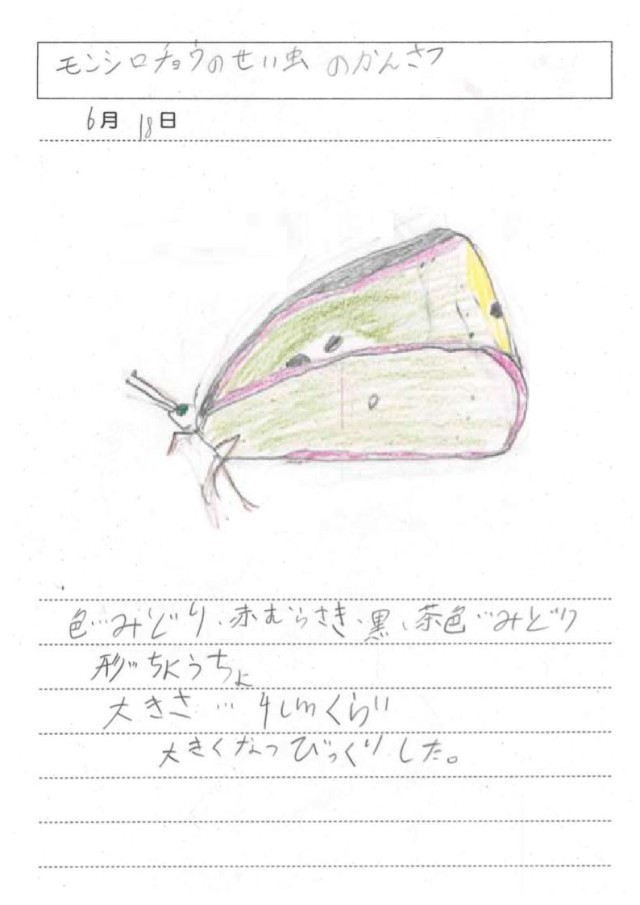 モンシロチョウのせい虫 のかんさつ
6月 18日
色…みどり、赤むらさき、黒、茶色…みどり
形…ちょうちょ
大きさ … 4cmくらい
大きくなってびっくりした。